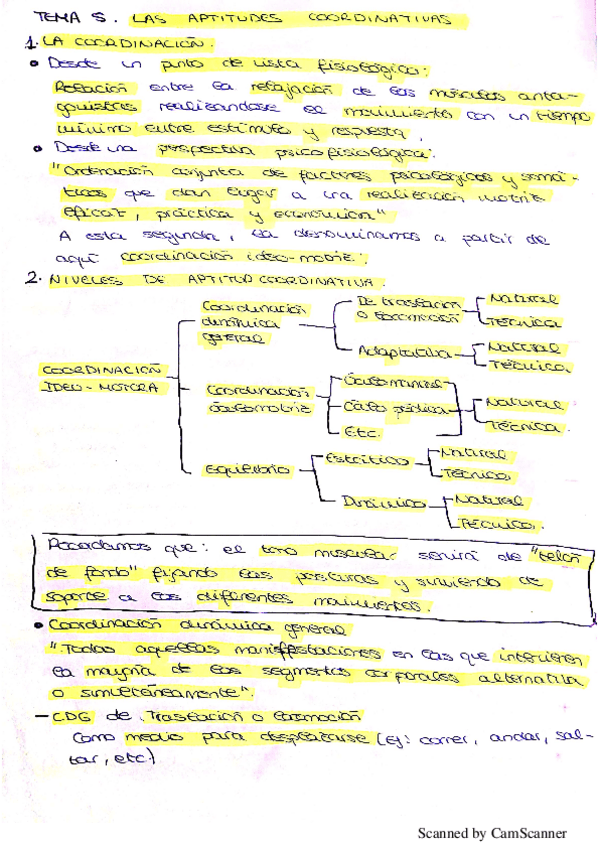 TEMA 5. LAS APTITUDES COORDINATIVAS
1. LA COORDINACIÓN.
• Desde un punto de vista fisiológico:
Relación entre la relajación de los músculos anta-
gonistas realizándose el movimiento con un tiempo
mínimo entre estímulo y respuesta.
• Desde una perspectiva psicofisiológica:
"Ordenación conjunta de factores psicológicos y somá-
ticos que dan lugar a una realización motriz
eficaz, práctica y economica"
A esta segunda, la denominamos a partir de
aquí coordinación ideo-motriz.
2. NIVELES DE APTITUD COORDINATIVA.
COORDINACIÓN
IDEO-MOTORA
Coordinación
dinámica
general
De traslación
o locomoción
Natural
Técnica
Adaptativa
Natural
Técnica
Coordinación
óculomotriz
Óculo manual
Óculo pédica
Etc.
Natural
Técnica
Equilibrio
Estático
Natural
Técnico
Dinámico
Natural
Técnico.
Recordamos que: el tono muscular servirá de "telón
de fondo" fijando las posturas y sirviendo de
soporte a los diferentes movimientos.
• Coordinación dinámica general
"Todas aquellas manifestaciones en las que intervienen
la mayoría de los segmentos corporales alternativa
o simultáneamente".
- CDG de Traslación o locomoción
Como medio para desplazarse (ej: correr, andar, sal-
tar, etc.)
Scanned by CamScanner